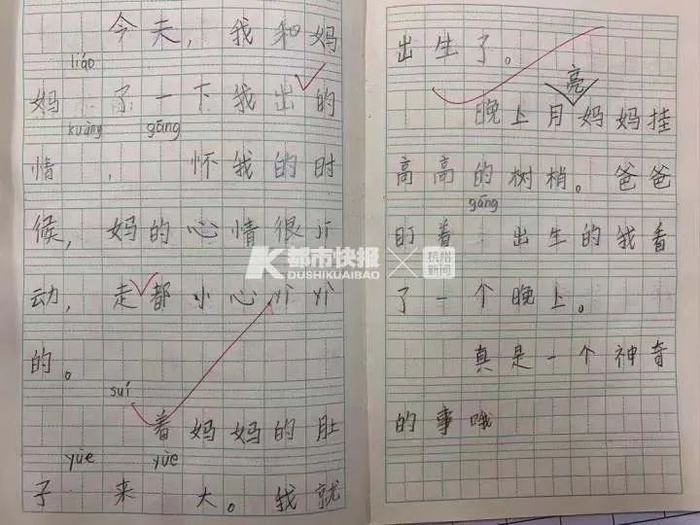 今天,我和妈
liáo
妈 了一下我出的
kuàng gāng
情 , 怀我的时
候,妈的心情很jī
动,走都小心yì yì
的。
suí
着妈妈的肚
yùe yùe
子 来 大。我就
出生了。
亮
晚上月妈妈挂
高高的树梢。爸爸
gāng
盯着 出生的我看
了一个晚上。
真是一个神奇
的事哦
K都市快报
DUSHIKUAIBAO
杭州新闻